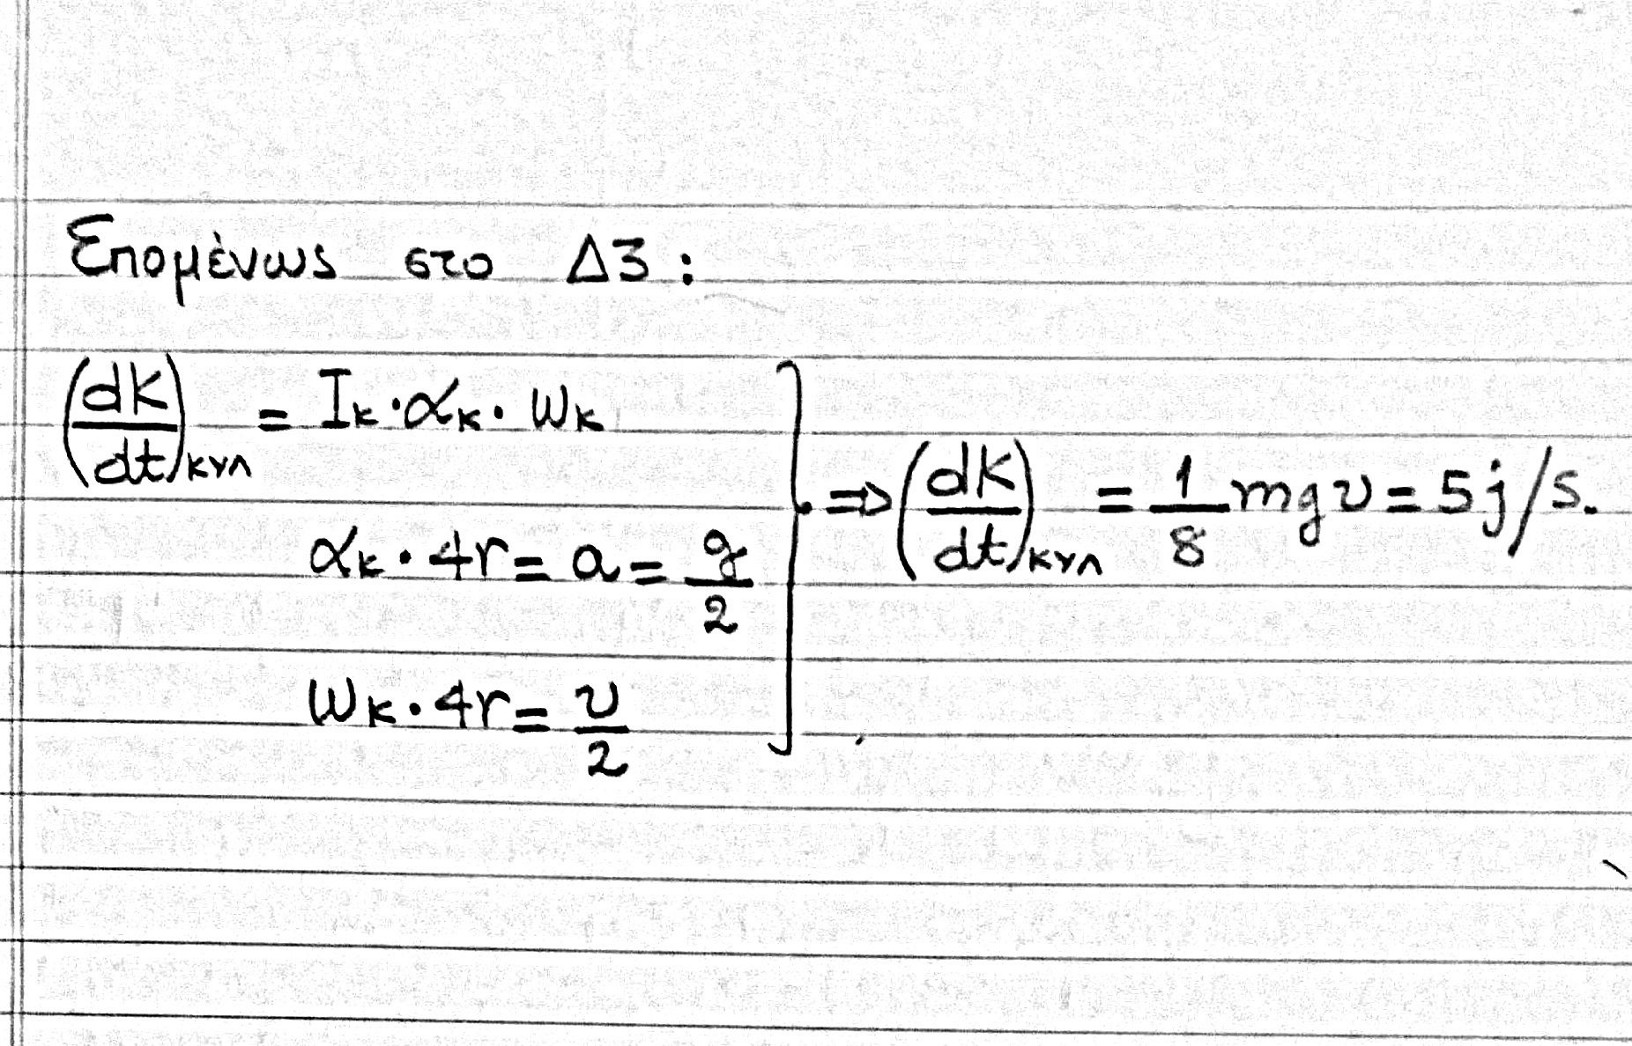 Επομένως στο Δ3:
(dK/dt)κυλ = Iκ·ακ·ωκ
ακ·4r = a = g/2
ωκ·4r = υ/2
⇒ (dK/dt)κυλ = 1/8 mgυ = 5j/s.